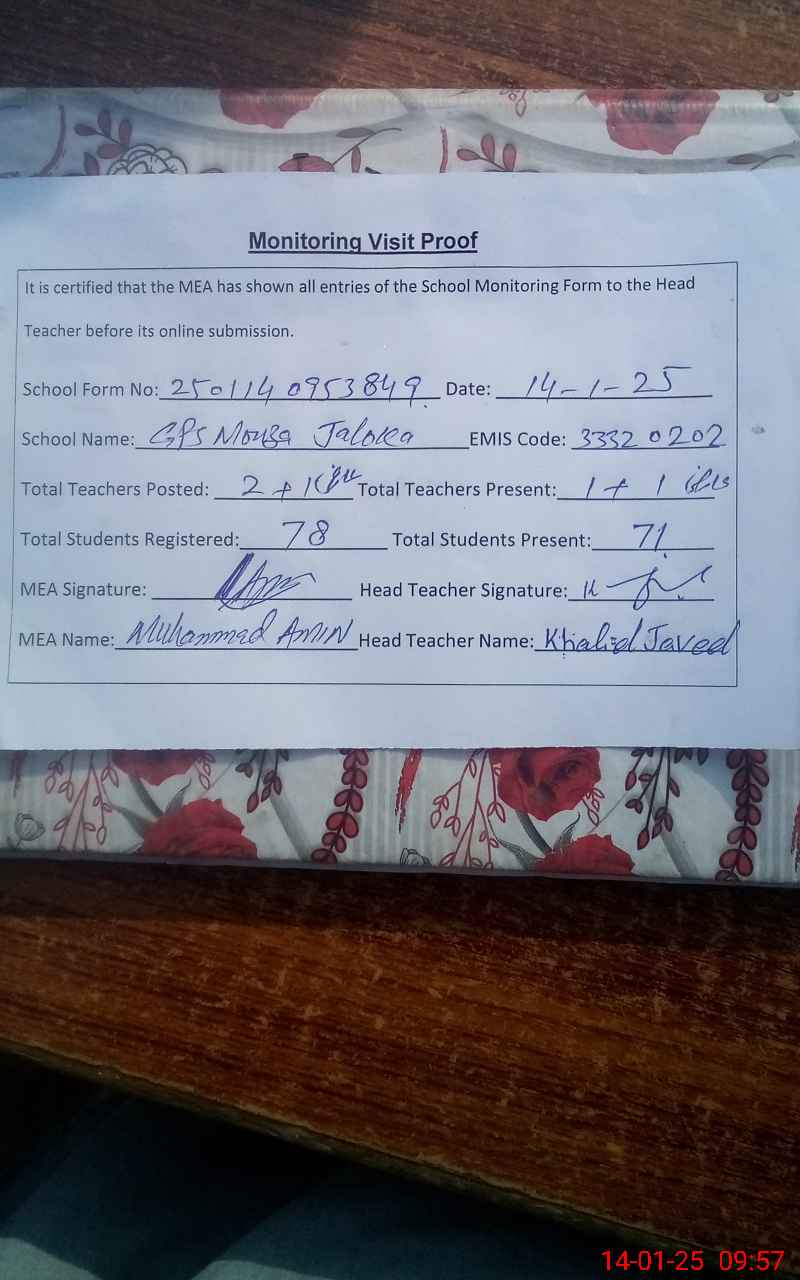 Monitoring Visit Proof
It is certified that the MEA has shown all entries of the School Monitoring Form to the Head
Teacher before its online submission.
School Form No: 2501140953849 Date: 14-1-25
School Name: GPS Mouza Jaloka EMIS Code: 33320202
Total Teachers Posted: 2+1 Total Teachers Present: 1+1
Total Students Registered: 78 Total Students Present: 71
MEA Signature: Head Teacher Signature:
MEA Name: Muhammad AMIN Head Teacher Name: Khalid Javeed
14-01-25 09:57